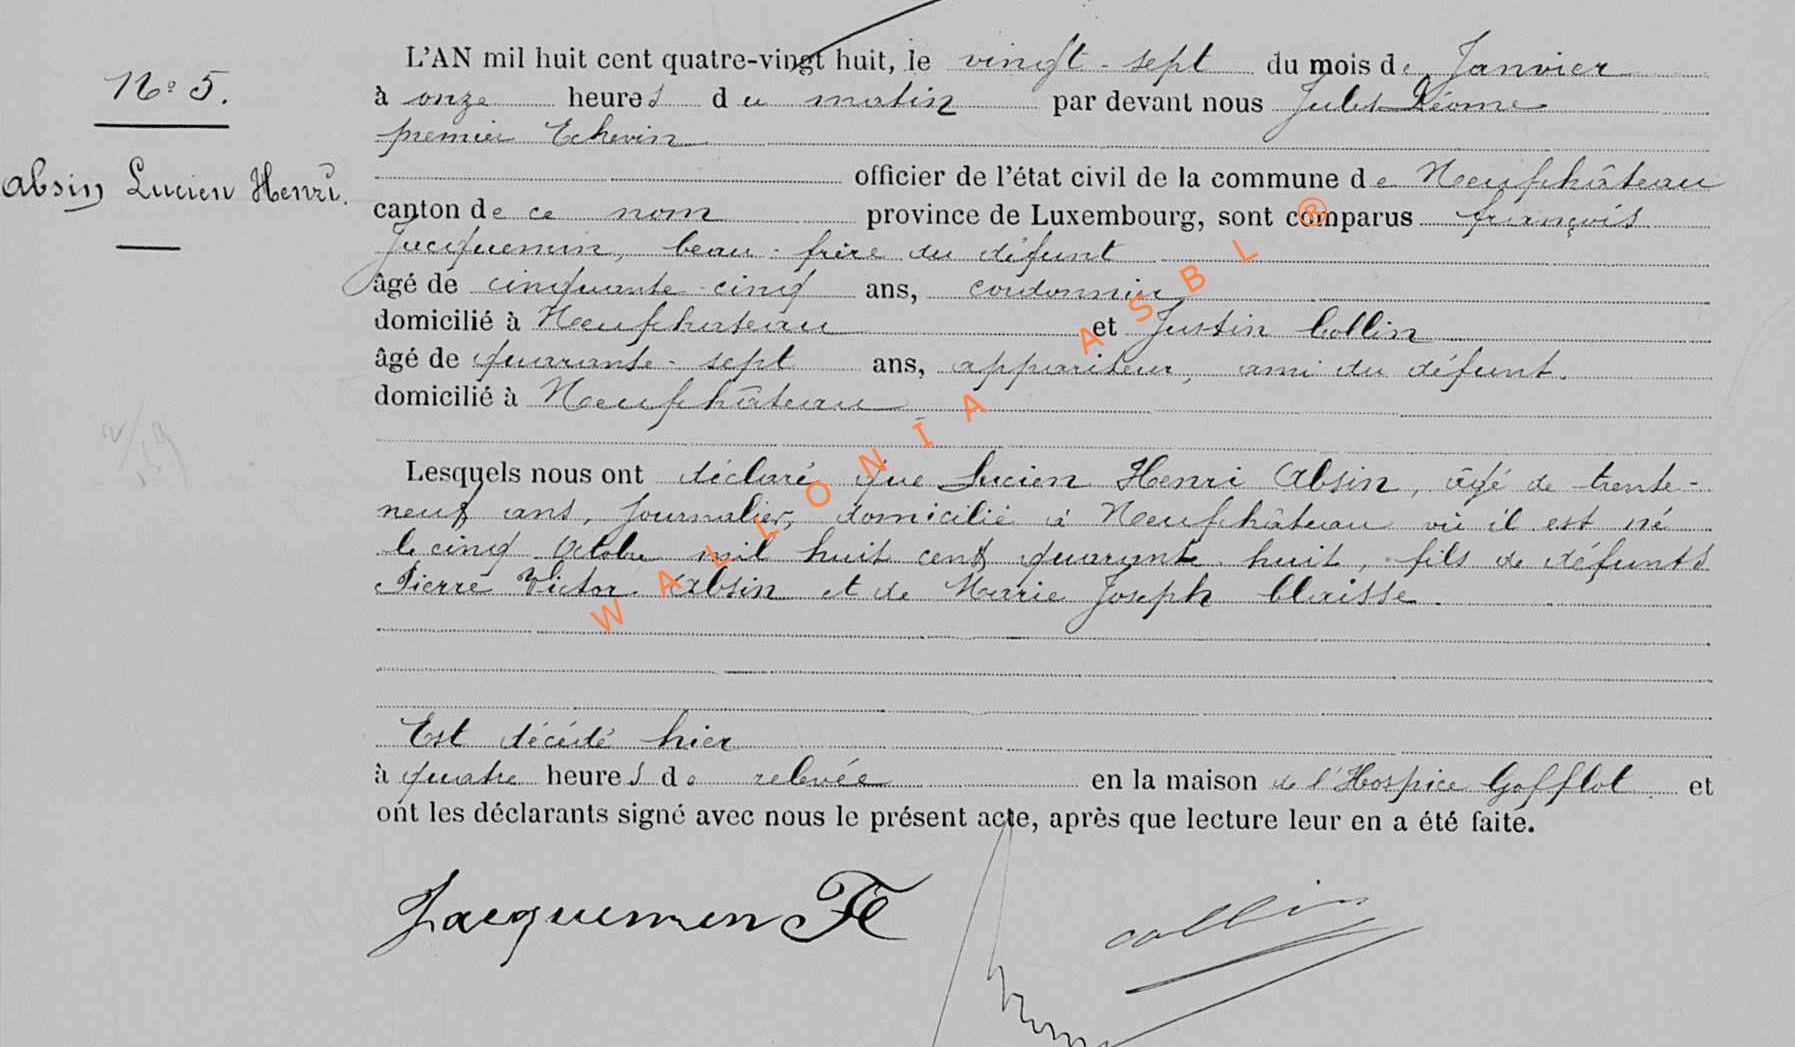 N° 5.
Absin Lucien Henri.
L'AN mil huit cent quatre-vingt huit, le vingt-sept du mois de Janvier
à onze heures du matin par devant nous Jules
premier Echevin
officier de l'état civil de la commune de Neufchâteau
canton de ce nom province de Luxembourg, sont comparus françois
Jacquemin, beau-frère du défunt
âgé de cinquante-cinq ans, cordonnier
domicilié à Neufchateau et Justin Collin
âgé de quarante-sept ans, appariteur, ami du défunt.
domicilié à Neufchâteau
Lesquels nous ont déclaré que Lucien Henri Absin, âgé de trente-
neuf ans, journalier, domicilié à Neufchâteau où il est né
le cinq Octobre mil huit cent quarante huit, fils de défunts
Pierre Victor Absin et de Marie Joseph Claisse.
Est décédé hier
à quatre heures de relevée en la maison de l'Hospice Gofflot et
ont les déclarants signé avec nous le présent acte, après que lecture leur en a été faite.
Jacquemin
collin
WALLONIA ASBL ®